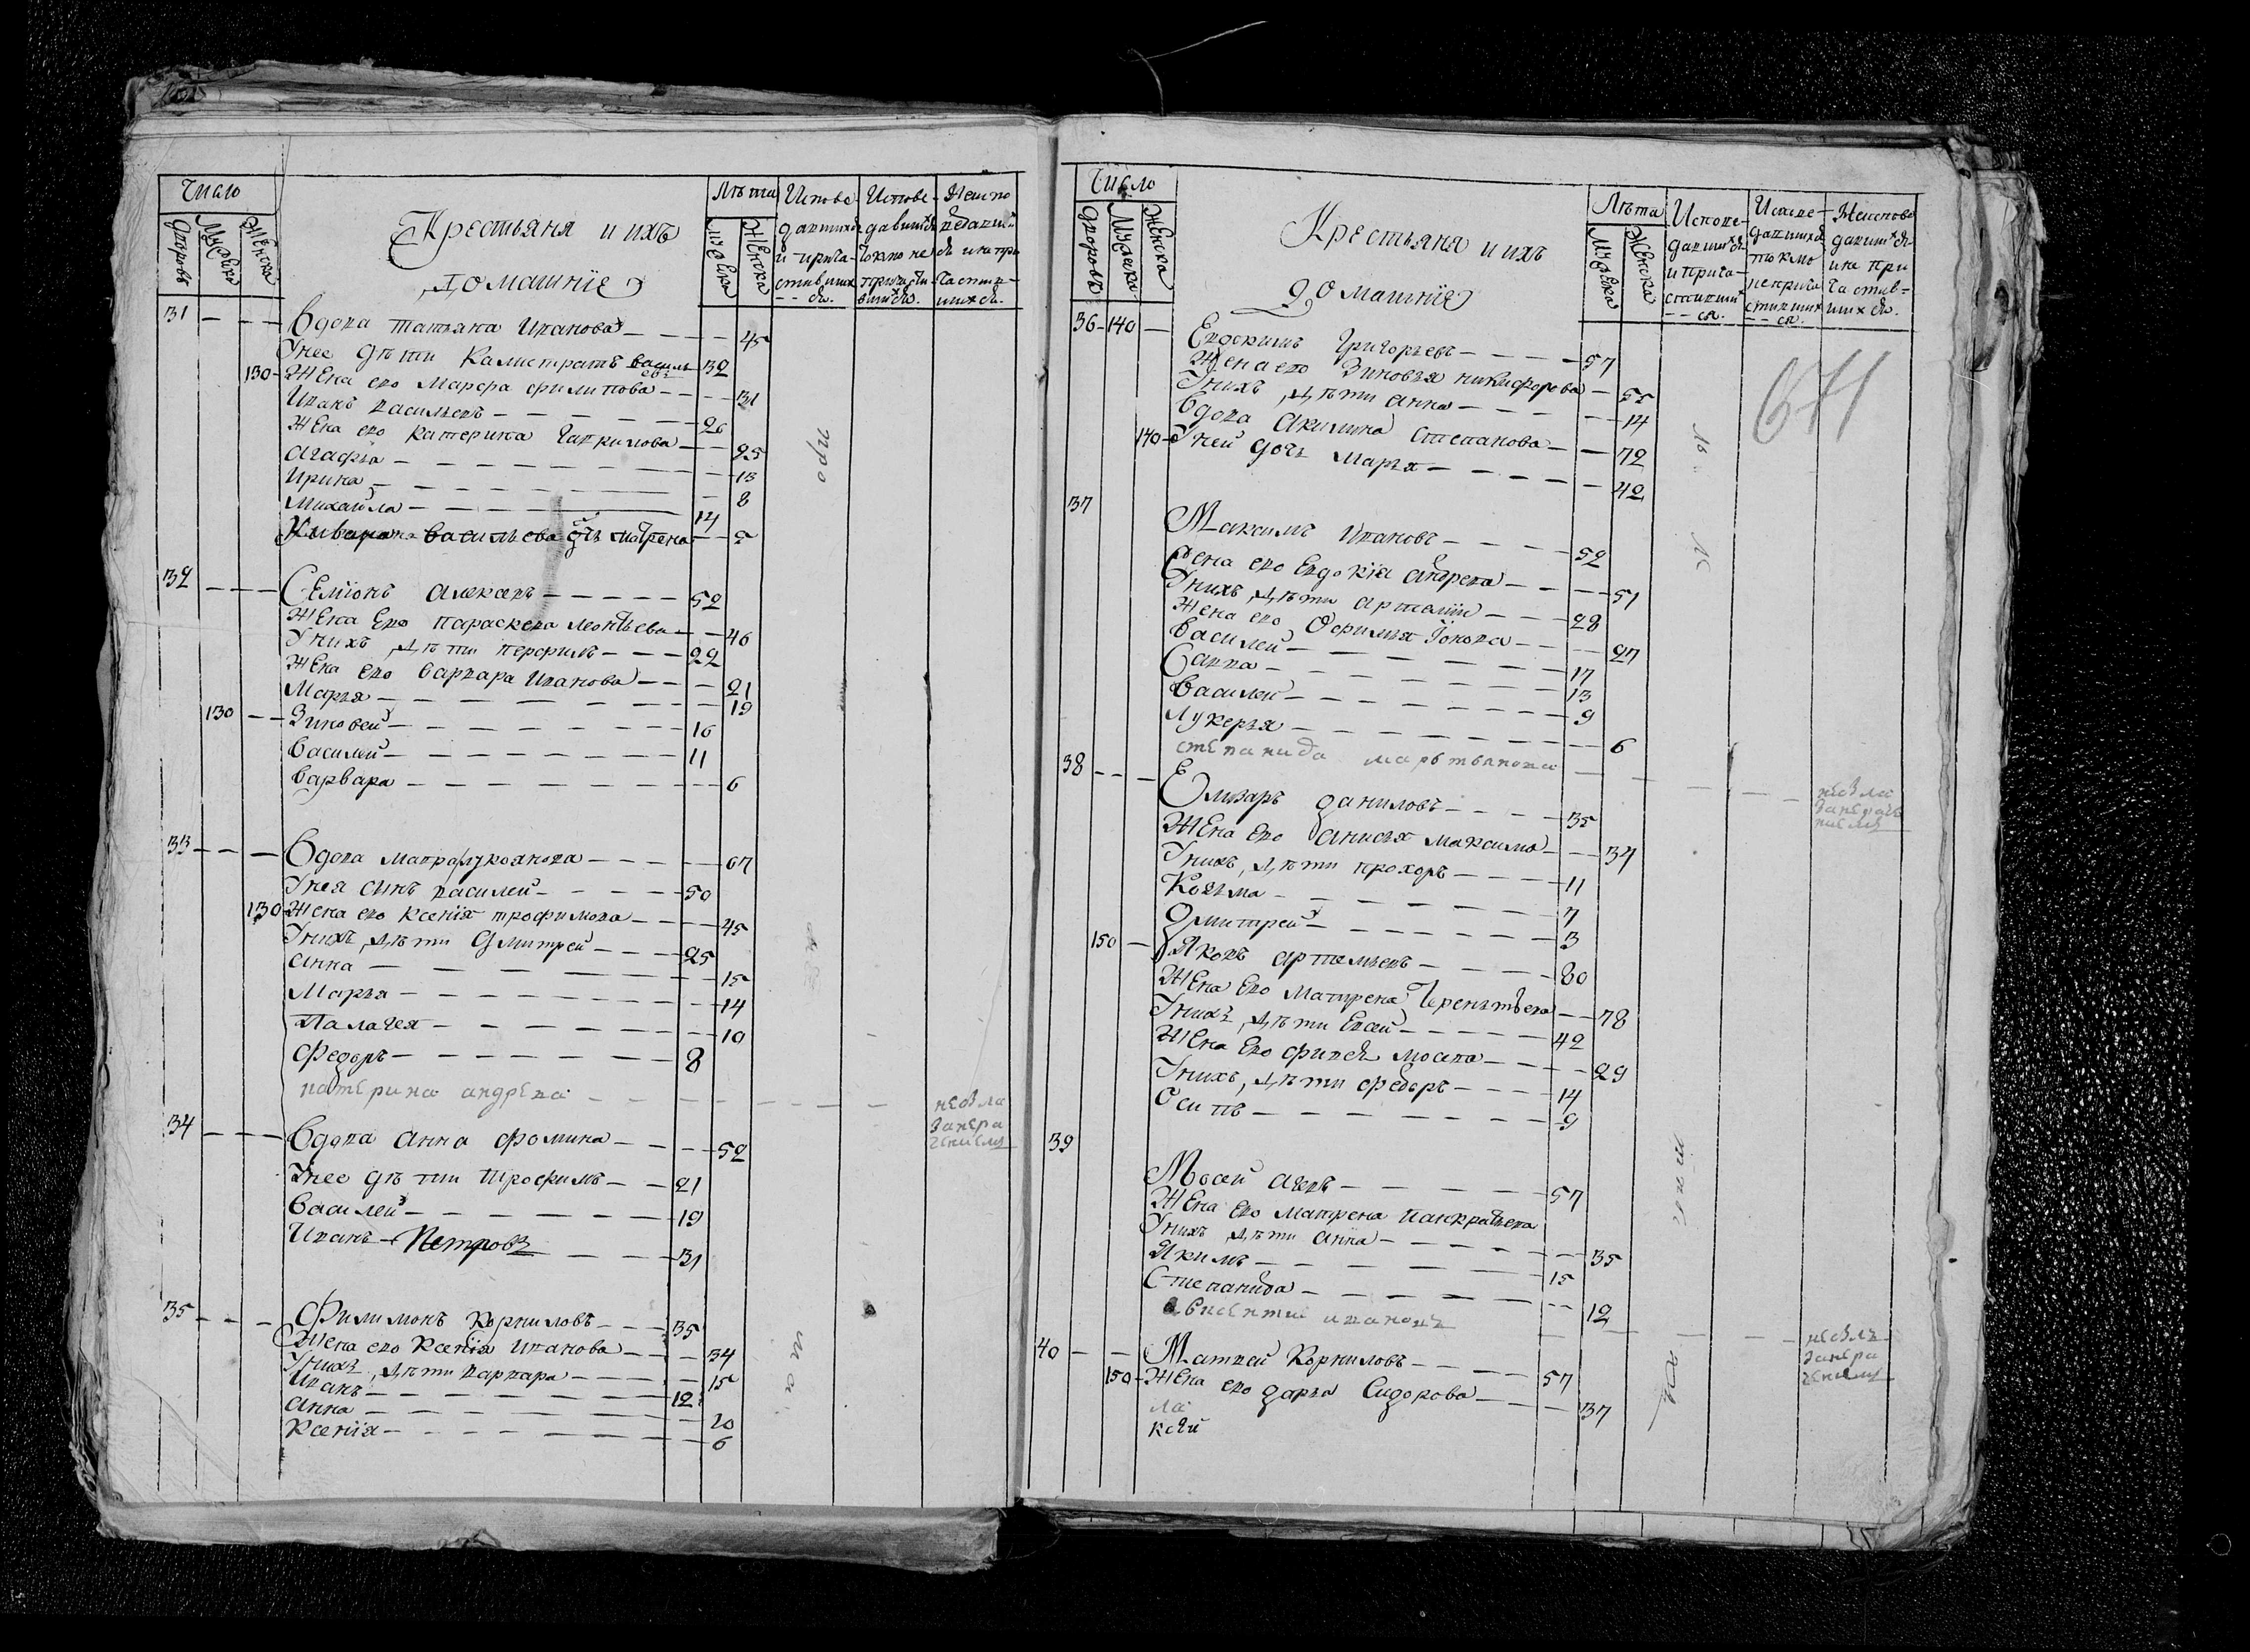 Число
Дворовъ
Мужска
Женска
Крестьяня и ихъ
Домашнїе
Лѣта
Мужска
Женска
Испове-
давшихся
и прича-
стивших
ся.
Испове-
давшихся
токмо не
причасти
вшихся.
Неиспо
ведавши
ся и не при
частив-
шихся.
31 Вдова татьяна Иванова 45
Унее дѣти Калистратъ василь евъ 32
130 Жена его Марфа филипова 31
Иванъ васильевъ 26
Жена его катерина Гаврилова 25
Агафья 13
Ирина 8
Михайла 14
васильева дчь матрена
32 Семїонъ Алексеевъ 52
Жена Его параскева леонтьева 46
Унихъ дѣти перфилъ 22
Жена его варвара Иванова 21
Марья 19
130 Зиновей 16
Василей 11
Варвара 6
33 Вдова Мавра лукоянова 67
Унея сынъ василей 50
130 Жена его ксенїя трофимова 45
Унихъ дѣти Дмитрей 25
Анна 15
Марья 14
Палагея 10
Федоръ 8
катерина андрева
небыла
занера
чениемъ
34 Вдова Анна фомина 52
Унее дѣти Трофимъ 21
Василей 19
Иванъ Петровъ 31
35 Филимонъ Корниловъ 35
Жена его Ксенїя Иванова 34
Унихъ дѣти варвара 15
Иванъ 12
Анна 10
Ксенїя 6
Число
Дворовъ
Мужска
Женска
Крестьяня и ихъ
Домашнїе
Лѣта
Мужска
Женска
Испове-
давшихся
и прича-
стивших
ся.
Испове-
давшихся
токмо
неприча
стивших
ся.
Неиспове
давшихся
и не при
частив-
шихся.
671
36 140 Евдокимъ Григорьевъ 57
Жена его Зиновья никифорова 55
Унихъ дѣти анна 14
Вдова Акилина степанова 72
140 Уней дочь Марья 42
37
Максимъ Ивановъ 52
Жена его Евдокїя андрева 51
Унихъ дѣти артемїи 28
Жена его Офимья 27
Василей 17
Савва 13
Василей 9
Лукерья 6
степанида мартьянова
небыла
занераче
ниемъ
38 Елизаръ даниловъ 35
Жена его Анисья максимо 34
Унихъ дѣти прохоръ 11
Козьма 7
Дмитрей 3
150 Яковъ артемьевъ 80
Жена Его Матрена Терентьева 78
Унихъ дѣти Евсей 42
Жена Его 29
Унихъ дѣти федоръ 14
Осипъ 9
39
Мосей агевъ 57
Жена Его Матрена панкратьева
Унихъ дѣти анна 35
Якимъ 15
Степанида 12
авксентии ивановъ
небылъ
занера
чениемъ
40 Матвей Корниловъ 57
150 Жена его дарья Сидорова 37